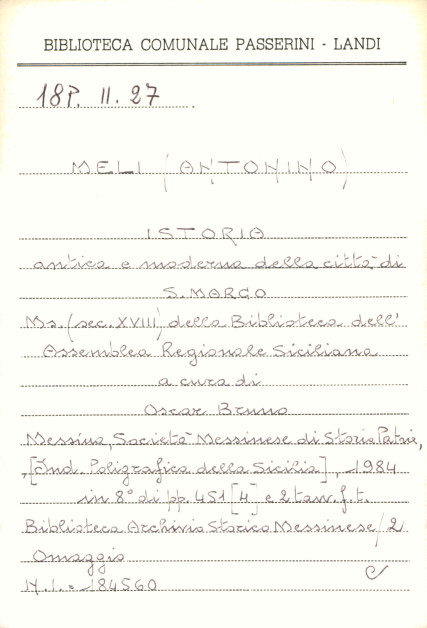 BIBLIOTECA COMUNALE PASSERINI - LANDI
18P. II. 27
MELI (ANTONINO)
ISTORIA
antica e moderna della città di
S. MARCO
Ms. (sec. XVIII) della Biblioteca dell'
Assemblea Regionale Siciliana
a cura di
Oscar Bruno
Messina, Società Messinese di Storia Patria,
[Ind. Poligrafica della Sicilia], 1984
in 8° di pp. 451 [4] e 2 tav. f. t.
Biblioteca Archivio Storico Messinese / 2
Omaggio
N. I. = 184560